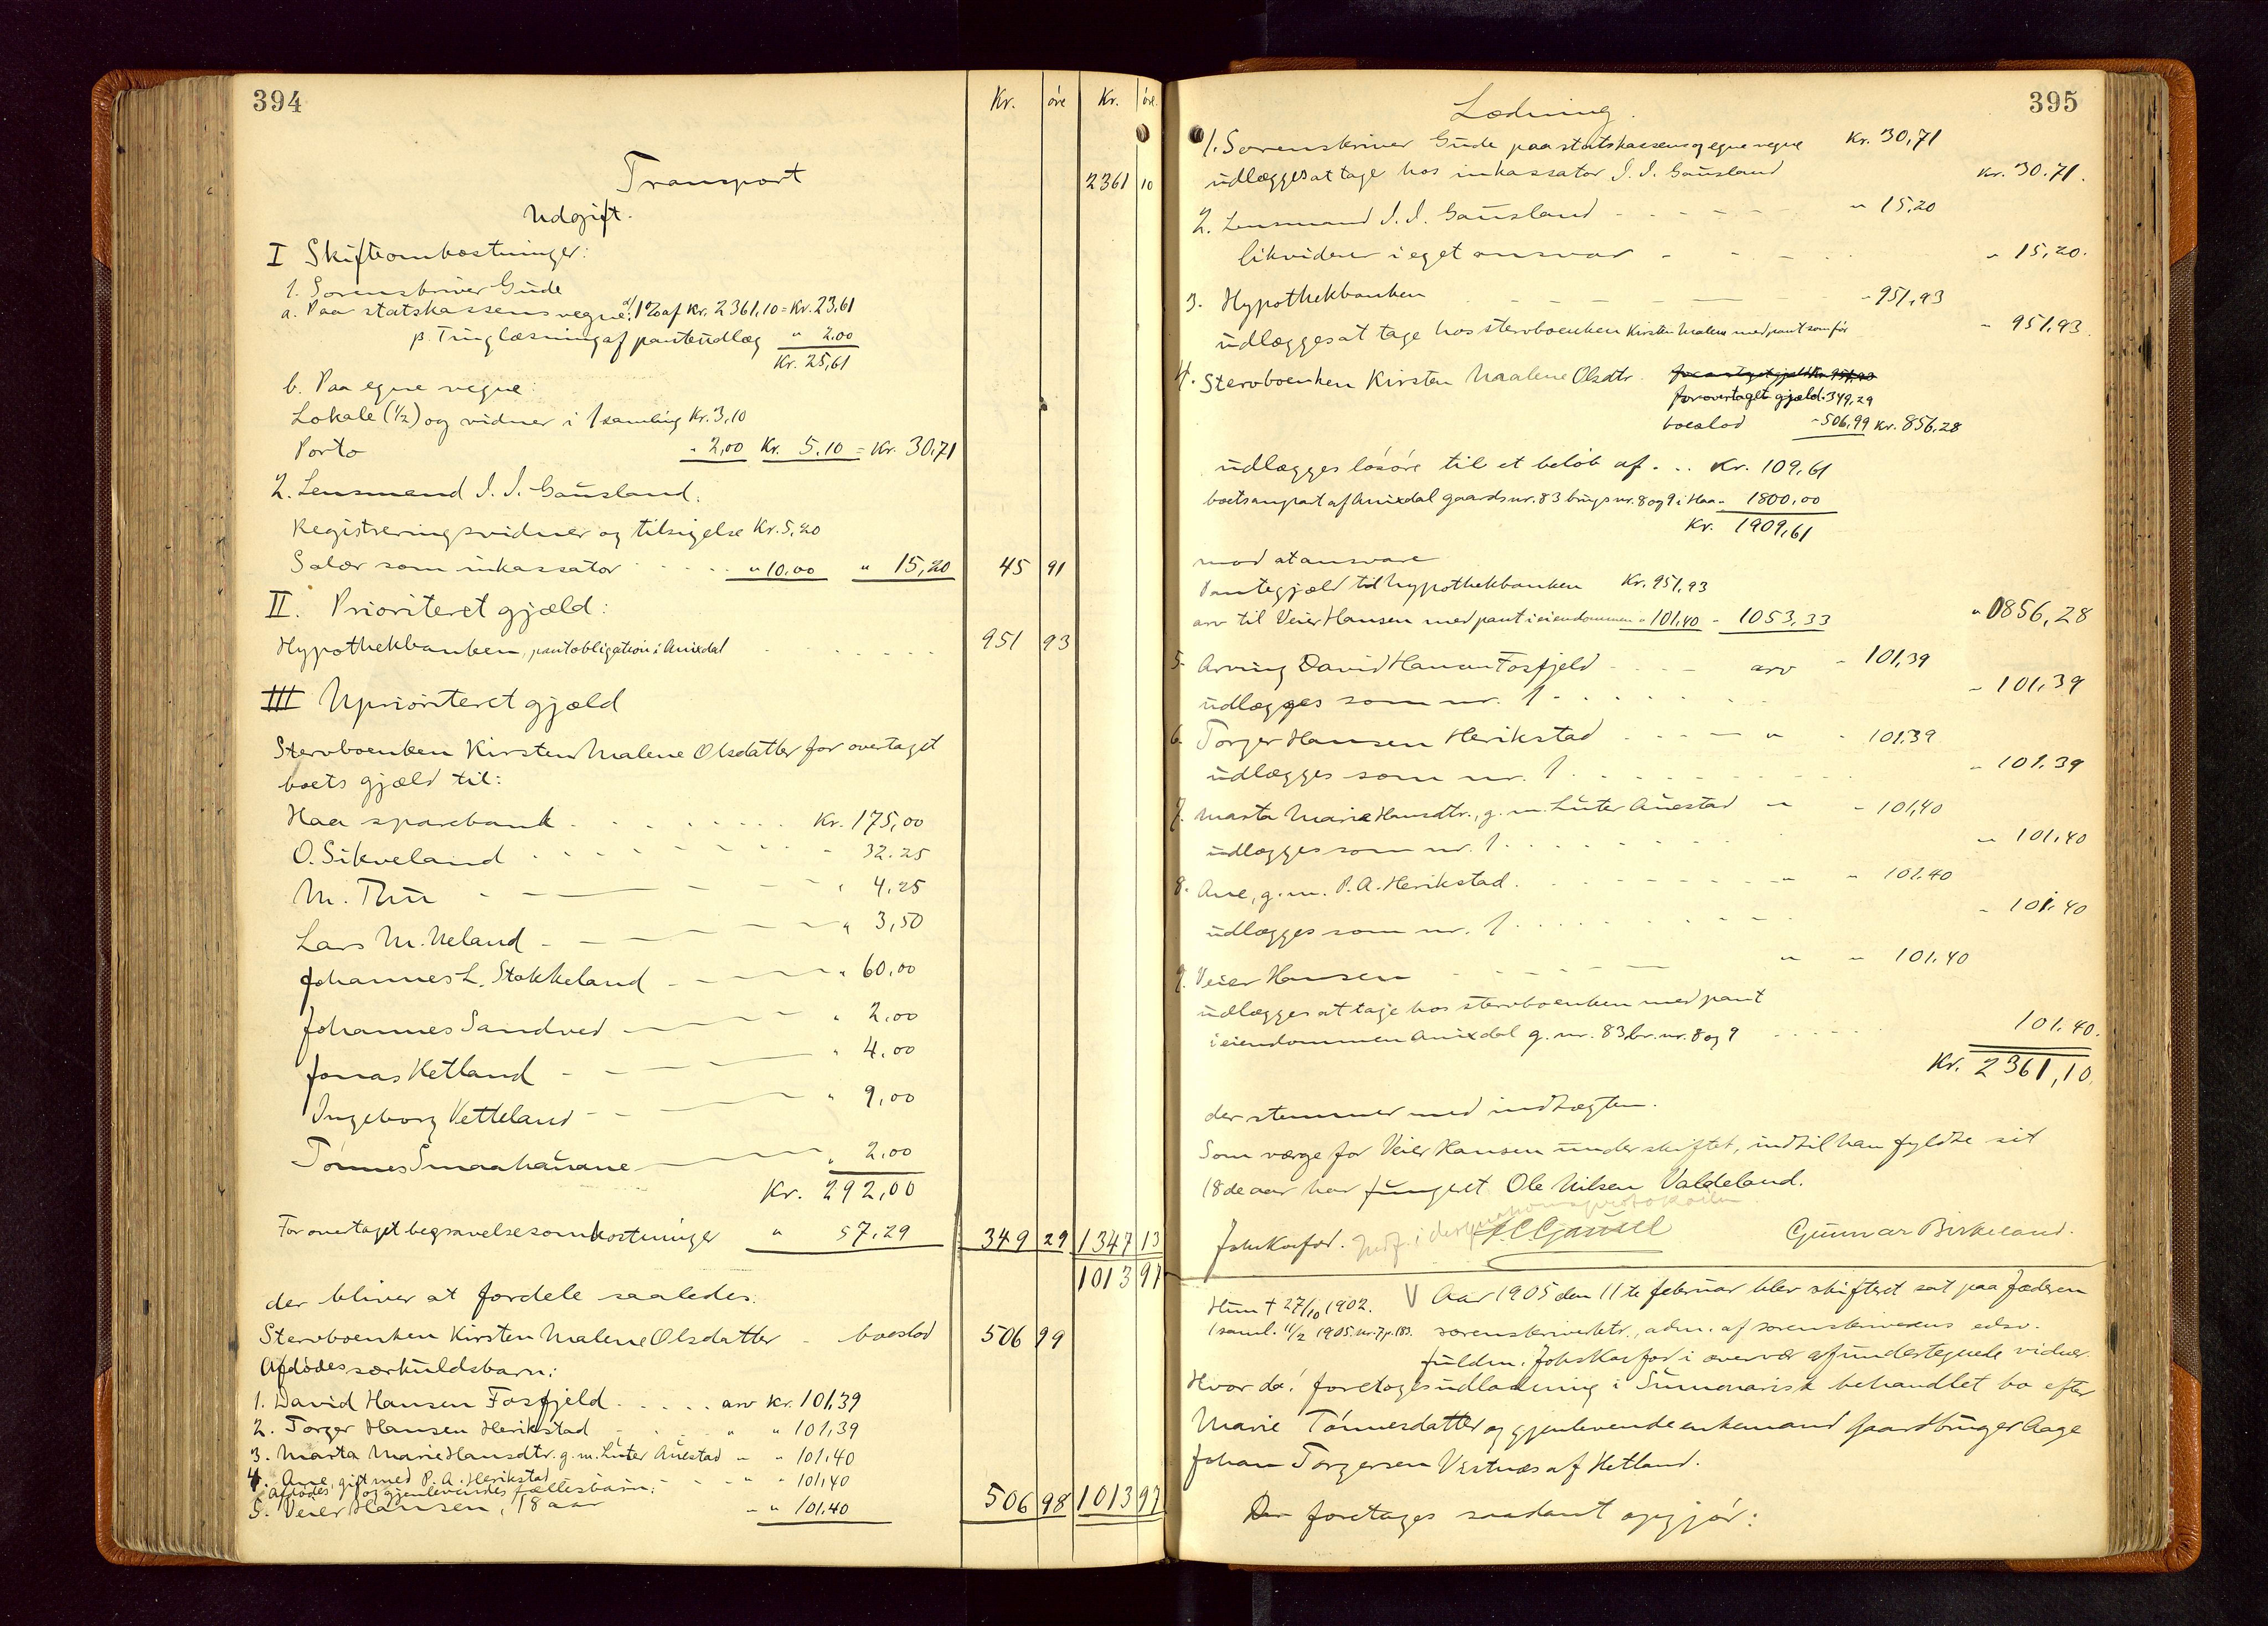 394
Kr. öre Kr. öre
Transport 2361 10
Udgift.
I Skifteomkostninger:
1. Sorenskriver Gude
a. Paa statskassens vegne: α/ 1% af Kr. 2361,10 = Kr. 23,61
β. Tinglæsning af panteudlæg " 2.00
Kr. 25,61
b. Paa egne vegne:
Lokale (1/2) og vidner i 1 samling Kr. 3,10
Porto - 2,00 Kr. 5.10 = Kr. 30,71
2. Lensmand J. J. Gausland.
Registreringsvidner og tilsigelse Kr. 5,20
Salær som inkassator " 10,00 " 15,20 45 91
II. Prioriteret gjæld:
Hypothekbanken, pantobligation i Anixdal 951 93
III Uprioriteret gjæld
Stervboenken Kirsten Malene Olsdatter for overtaget
boets gjæld til:
Haa sparebank Kr. 175,00
O. Sikveland - 32.25
M. Thu " 4,25
Lars M. Neland " 3,50
Johannes L. Stokkeland " 60,00
Johannes Sandved " 2.00
Jonas Hetland " 4,00
Ingeborg Vetteland " 9,00
Tönnes Smaahaugane " 2.00
Kr. 292,00
For overtaget begravelsesomkostninger " 57,29 349 29 1347 13
1013 97
der bliver at fordele saaledes:
Stervboenken Kirsten Malene Olsdatter - boeslod 506 99
Afdödes særkuldsbarn:
1. David Hansen Fosfjeld arv Kr. 101,39
2. Torger Hansen Herikstad " " 101,39
3. Marta Marie Hansdtr. g. m. Luter Auestad " " 101,40
4. Ane, gift med P. A. Herikstad " " 101,40
Afdödes og gjenlevendes fællesbarn:
5. Veier Hansen, 18 aar - " 101.40 506 98 1013 97
395
Lodning.
1. Sorenskriver Gude paa statskassens og egne vegne Kr. 30,71
udlægges at tage hos inkassator J. J. Gausland Kr. 30.71.
2. Lensmand J. J. Gausland " 15,20
likviderer i eget ansvar " 15,20.
3. Hypothekbanken - 951,93
udlægges at tage hos stervboenken Kirsten Malene med pant som för " 951,93.
4. Stervboenken Kirsten Maalene Olsdtr.
for overtaget gjæld. 349,29
boeslod - 506,99 Kr. 856,28
udlægges lösöre til et belöb af. .. Kr. 109,61
boets anpart af Anixdal gaardsnr. 83 brugsnr. 8 og 9 i Haa " 1800,00
Kr. 1909,61
mod at ansvare
Pantegjæld til hypothekbanken Kr. 951,93
arv til Veier Hansen med pant i eiendommen " 101,40 - 1053,33 " 856,28
5. Arving David Hansen Fosfjeld arv - 101,39
udlægges som nr. 1 - 101,39
6. Torger Hansen Herikstad " - 101.39
udlægges som nr. 1 - 101.39
7. Marta Marie Hansdtr., g. m. Luter Auestad " - 101,40
udlægges som nr. 1 " 101,40
8. Ane, g. m. P. A. Herikstad " " 101.40
udlægges som nr. 1 - 101.40
9. Veier Hansen " " 101.40
udlægges at tage hos stervboenken med pant
i eiendommen Anixdal g. nr. 83 br. nr. 8 og 9 101.40.
Kr. 2361,10.
der stemmer med indtægten.
Som værge for Veier Hansen under skiftet, indtil han fyldte sit
18de aar har fungeret Ole Nilsen Valdeland.
Joh. Korfod. Gunnar Birkeland.
Hun † 27/10 1902. V Aar 1905 den 11te februar blev skifteret sat paa Jæderen
1 saml. 11/2 1905. nr. 7 p. 183. sorenskriverktr., adm. af sorenskriverens edsv.
fuldm. Joh. Korfod i overvær af undertegnede vidner.
Hvor da! foretoges udlodning i Summarisk behandlet bo efter
Marie Tönnesdatter og gjenlevende enkemand gaardbruger Aage
Johan Torgersen Vestnæs af Hetland.
Der foretages saadant opgjör: